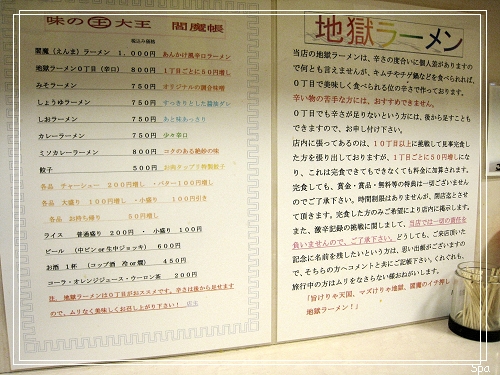 味の王大王 閻魔帳
税込み価格
閻魔(えんま)ラーメン 1,000円 あんかけ風辛口ラーメン
地獄ラーメン0丁目(辛口) 800円 1丁目ごとに50円増し
みそラーメン 750円 オリジナルの調合味噌
しょうゆラーメン 750円 すっきりとした醤油ダレ
しおラーメン 750円 あと味あっさり
カレーラーメン 750円 少々辛口
ミソカレーラーメン 800円 コクのある絶妙の味
餃子 500円
各品 チャーシュー 200円増し ・バター100円増し
各品 大盛り 100円増し ・小盛り 100円引き
各品 お持ち帰り 50円増し
ライス 普通盛り 200円 ・ 小盛り 100円
ビール (中ビンor生中ジョッキ) 600円
お酒 1杯 (コップ酒 冷or燗) 450円
コーラ・オレンジジュース・ウーロン茶 200円
注. 地獄ラーメンは0丁目がおススメです。辛さは後から足せますので、ムリなく美味しくお召し上がり下さい! 店主
地獄ラーメン
当店の地獄ラーメンは、辛さの度合いに個人差がありますので何とも言えませんが、キムチやチゲ鍋などを食べられれば、
0丁目で美味しく食べられる位の辛さで作っております。
辛い物の苦手な方には、おすすめできません。
0丁目でも辛さが足りないという方には、後から足すこともできますので、お申し付け下さい。
店内に張ってあるのは、10丁目以上に挑戦して見事完食した方を張り出しておりますが、1丁目ごとに50円増しになり、これは完食できてもできなくても料金に加算されます。
完食しても、賞金・賞品・無料等の特典は一切ございませんのでご了承下さい。時間制限はありませんが、閉店迄とさせて頂きます。完食した方のみご希望により店内に掲示します。
また、激辛記録の挑戦に関しまして、当店では一切の責任を負いませんので、ご了承下さい。どうしても、ご来店頂いた記念に名前を残したいという方は、思い出帳がございますので、そちらの方へコメントと共にご記帳下さい。くれぐれも、
旅行中の方はムリをなさらない様おねがいします。
「旨けりゃ天国、マズけりゃ地獄、閻魔のイチ押し
地獄ラーメン!」
Spa